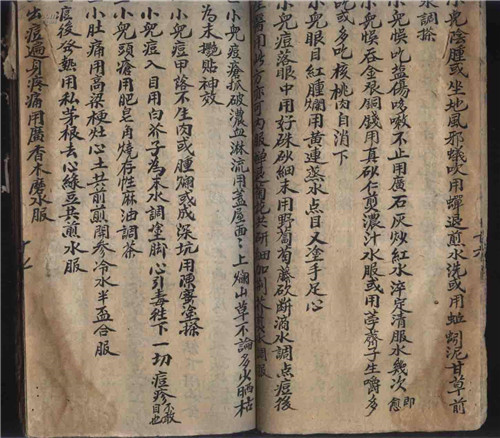 小兒陰腫或坐地風邪蟻吹用蟬退煎水洗或用蚯蚓泥甘草前
水調搽
小兒悞吃盐傷咳嗽不止用廣石灰炒紅水淬定清服水幾次即愈
小兒悞吞金銀銅錢用真砂仁煎濃汁水服或用荸薺子生嚼多
吃或多吃核桃肉自消下
小兒眼目紅腫爛用黄連蒸水点目又塗手足心
小兒痘落眼中用好硃砂細末用野葡萄藤砍断滴水調点痘後
小兒痘瘡抓破濃血淋流用蓋屋面上爛山草不論多少晒枯
為末攙貼神效
小兒痘甲落不生肉或腫爛或成深坑用陳蜜塗搽
小兒痘入目用白芥子為末水調塗脚心引毒往下一切痘疹不救目也
小兒頭瘡用肥皂角燒存性麻油調茶
小肚痛用高梁梗灶心土共前煎開参冷水半盃合服
痘後發熱用私茅根去心綠豆共煎水服
出痘遍身疼痛用廣香木磨水服